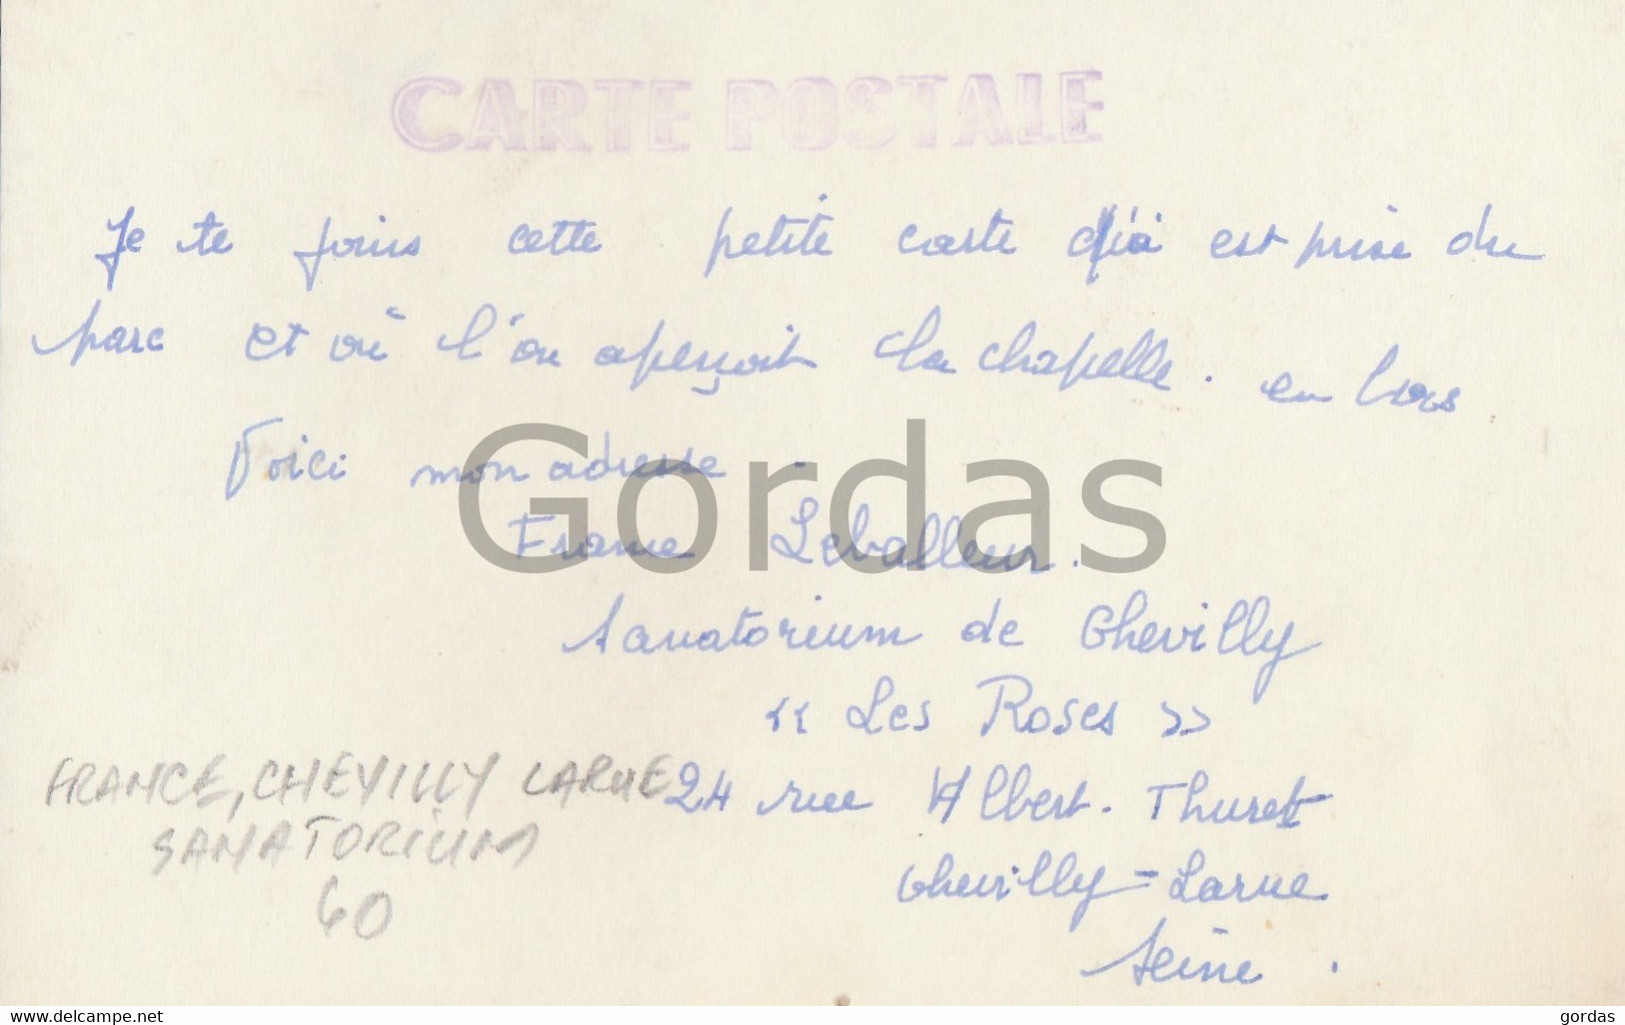 CARTE POSTALE
Je te joins cette petite carte qui est prise du
parc et où l'on aperçoit la chapelle. en
Voici mon adresse.
Gordas
Leballeur.
Sanatorium de Chevilly
« Les Roses »
FRANCE, CHEVILLY LARUE
24 rue Albert. Thuret
SANATORIUM
60
Chevilly=Larue
Seine.
www.delcampe.net
gordas